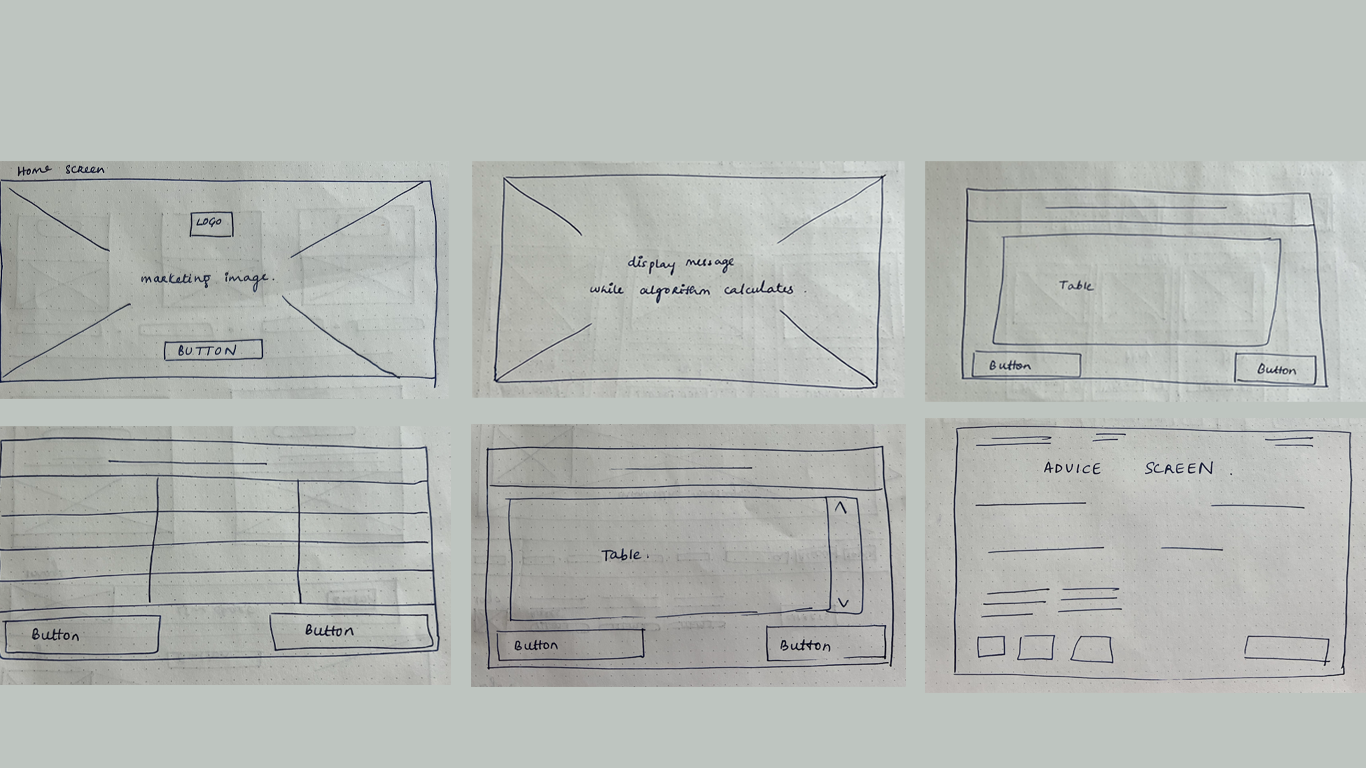 Home Screen
LOGO
marketing image.
BUTTON
display message
while algorithm calculates.
Table
Button
Button
Button
Button
Table.
Button
Button
ADVICE SCREEN.